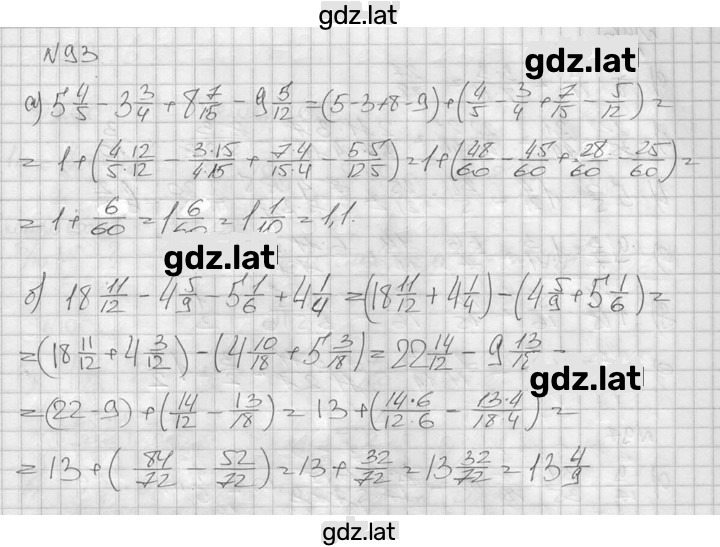 gdz.lat
N93
gdz.lat
а) 5 4/5 - 3 3/4 + 8 7/15 - 9 5/12 = (5-3+8-9) + (4/5 - 3/4 + 7/15 - 5/12) =
= 1 + (4·12/5·12 - 3·15/4·15 + 7·4/15·4 - 5·5/12·5) = 1 + (48/60 - 45/60 + 28/60 - 25/60) =
= 1 + 6/60 = 1 6/60 = 1 1/10 = 1,1.
gdz.lat
б) 18 11/12 - 4 5/9 - 5 1/6 + 4 1/4 = (18 11/12 + 4 1/4) - (4 5/9 + 5 1/6) =
= (18 11/12 + 4 3/12) - (4 10/18 + 5 3/18) = 22 14/12 - 9 13/18 =
gdz.lat
= (22-9) + (14/12 - 13/18) = 13 + (14·6/12·6 - 13·4/18·4) =
= 13 + (84/72 - 52/72) = 13 + 32/72 = 13 32/72 = 13 4/9
gdz.lat